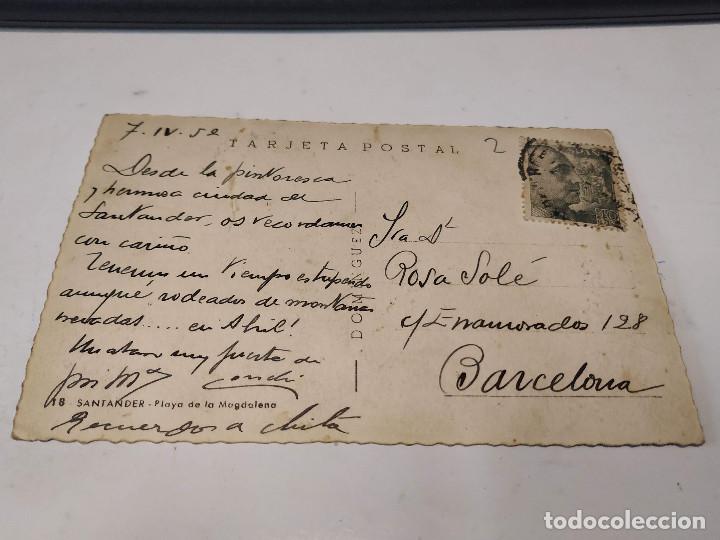 7-IV-52
TARJETA POSTAL
2
Desde la pintoresca
y hermosa ciudad de
Santander, os recordamos
con cariño
Tenemos un tiempo estupendo
aunque rodeados de montañas
nevadas..... en Abril!
Un abrazo muy fuerte de
Mª
18 SANTANDER - Playa de la Magdalena
Recuerdos a
DOMINGUEZ
Sra Dª
Rosa Solé
c/ Enamorados 128
Barcelona
40
todocoleccion
todocoleccion.net